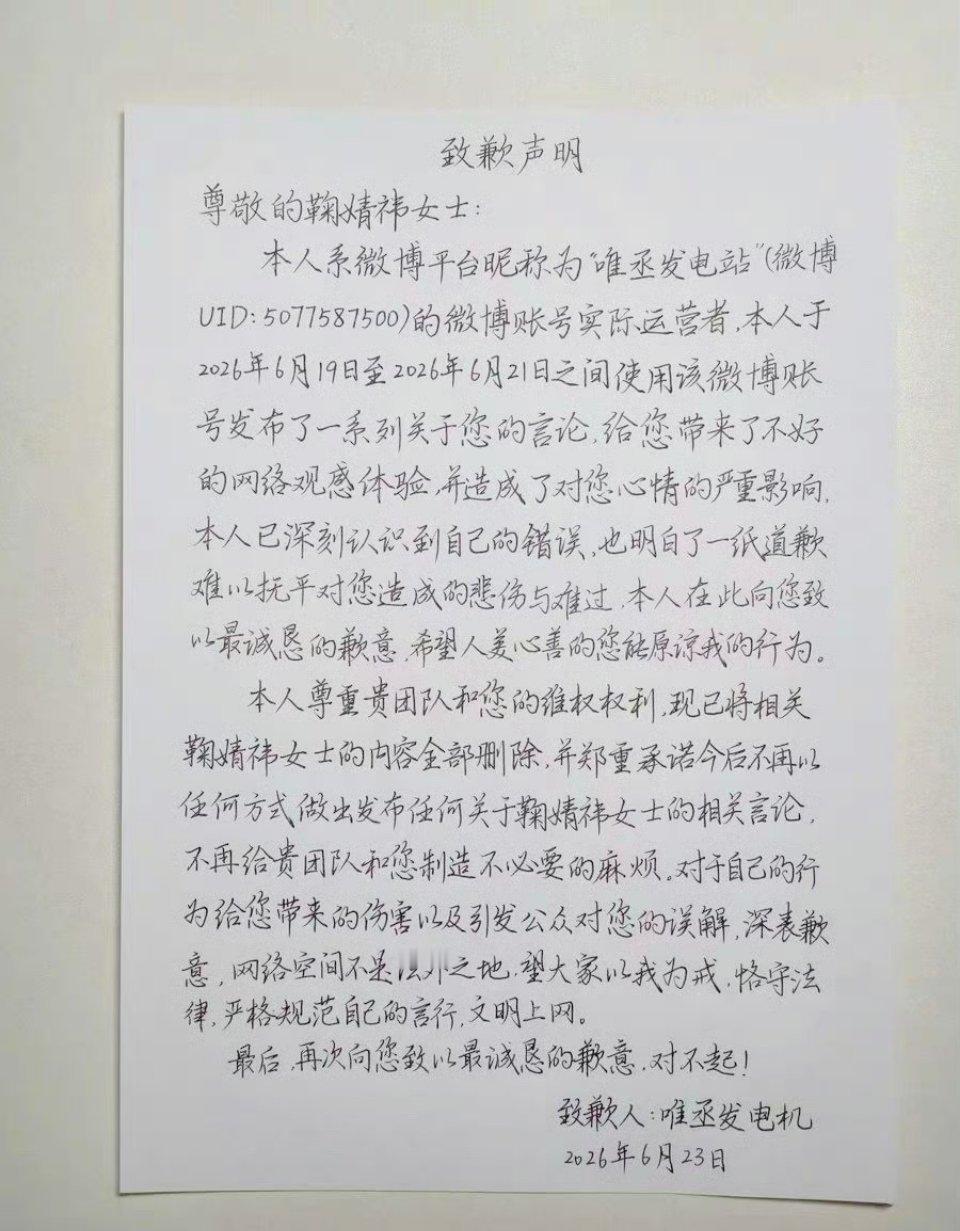 致歉声明
尊敬的鞠婧祎女士：
本人系微博平台昵称为“唯丞发电站”(微博
UID：5077587500)的微博账号实际运营者，本人于
2026年6月19日至2026年6月21日之间使用该微博账
号发布了一系列关于您的言论，给您带来了不好
的网络观感体验，并造成了对您心情的严重影响，
本人已深刻认识到自己的错误，也明白了一纸道歉
难以抚平对您造成的悲伤与难过，本人在此向您致
以最诚恳的歉意，希望人美心善的您能原谅我的行为。
本人尊重贵团队和您的维权权利，现已将相关
鞠婧祎女士的内容全部删除，并郑重承诺今后不再以
任何方式做出发布任何关于鞠婧祎女士的相关言论，
不再给贵团队和您制造不必要的麻烦。对于自己的行
为给您带来的伤害以及引发公众对您的误解，深表歉
意，网络空间不是法外之地，望大家以我为戒，恪守法
律，严格规范自己的言行，文明上网。
最后，再次向您致以最诚恳的歉意，对不起！
致歉人：唯丞发电机
2026年6月23日